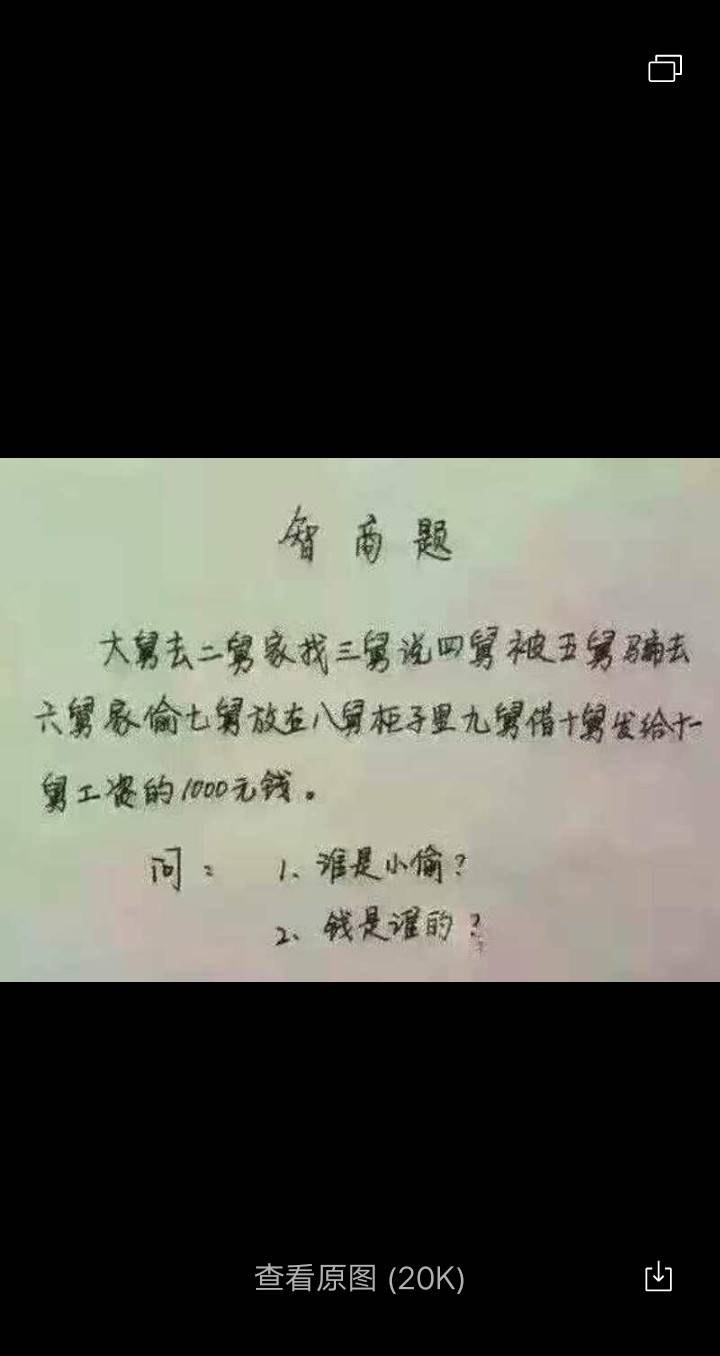 智商题
大舅去二舅家找三舅说四舅被五舅骗去
六舅家偷七舅放在八舅柜子里九舅借十舅发给十一
舅工资的1000元钱。
问：1、谁是小偷？
2、钱是谁的？
查看原图 (20K)